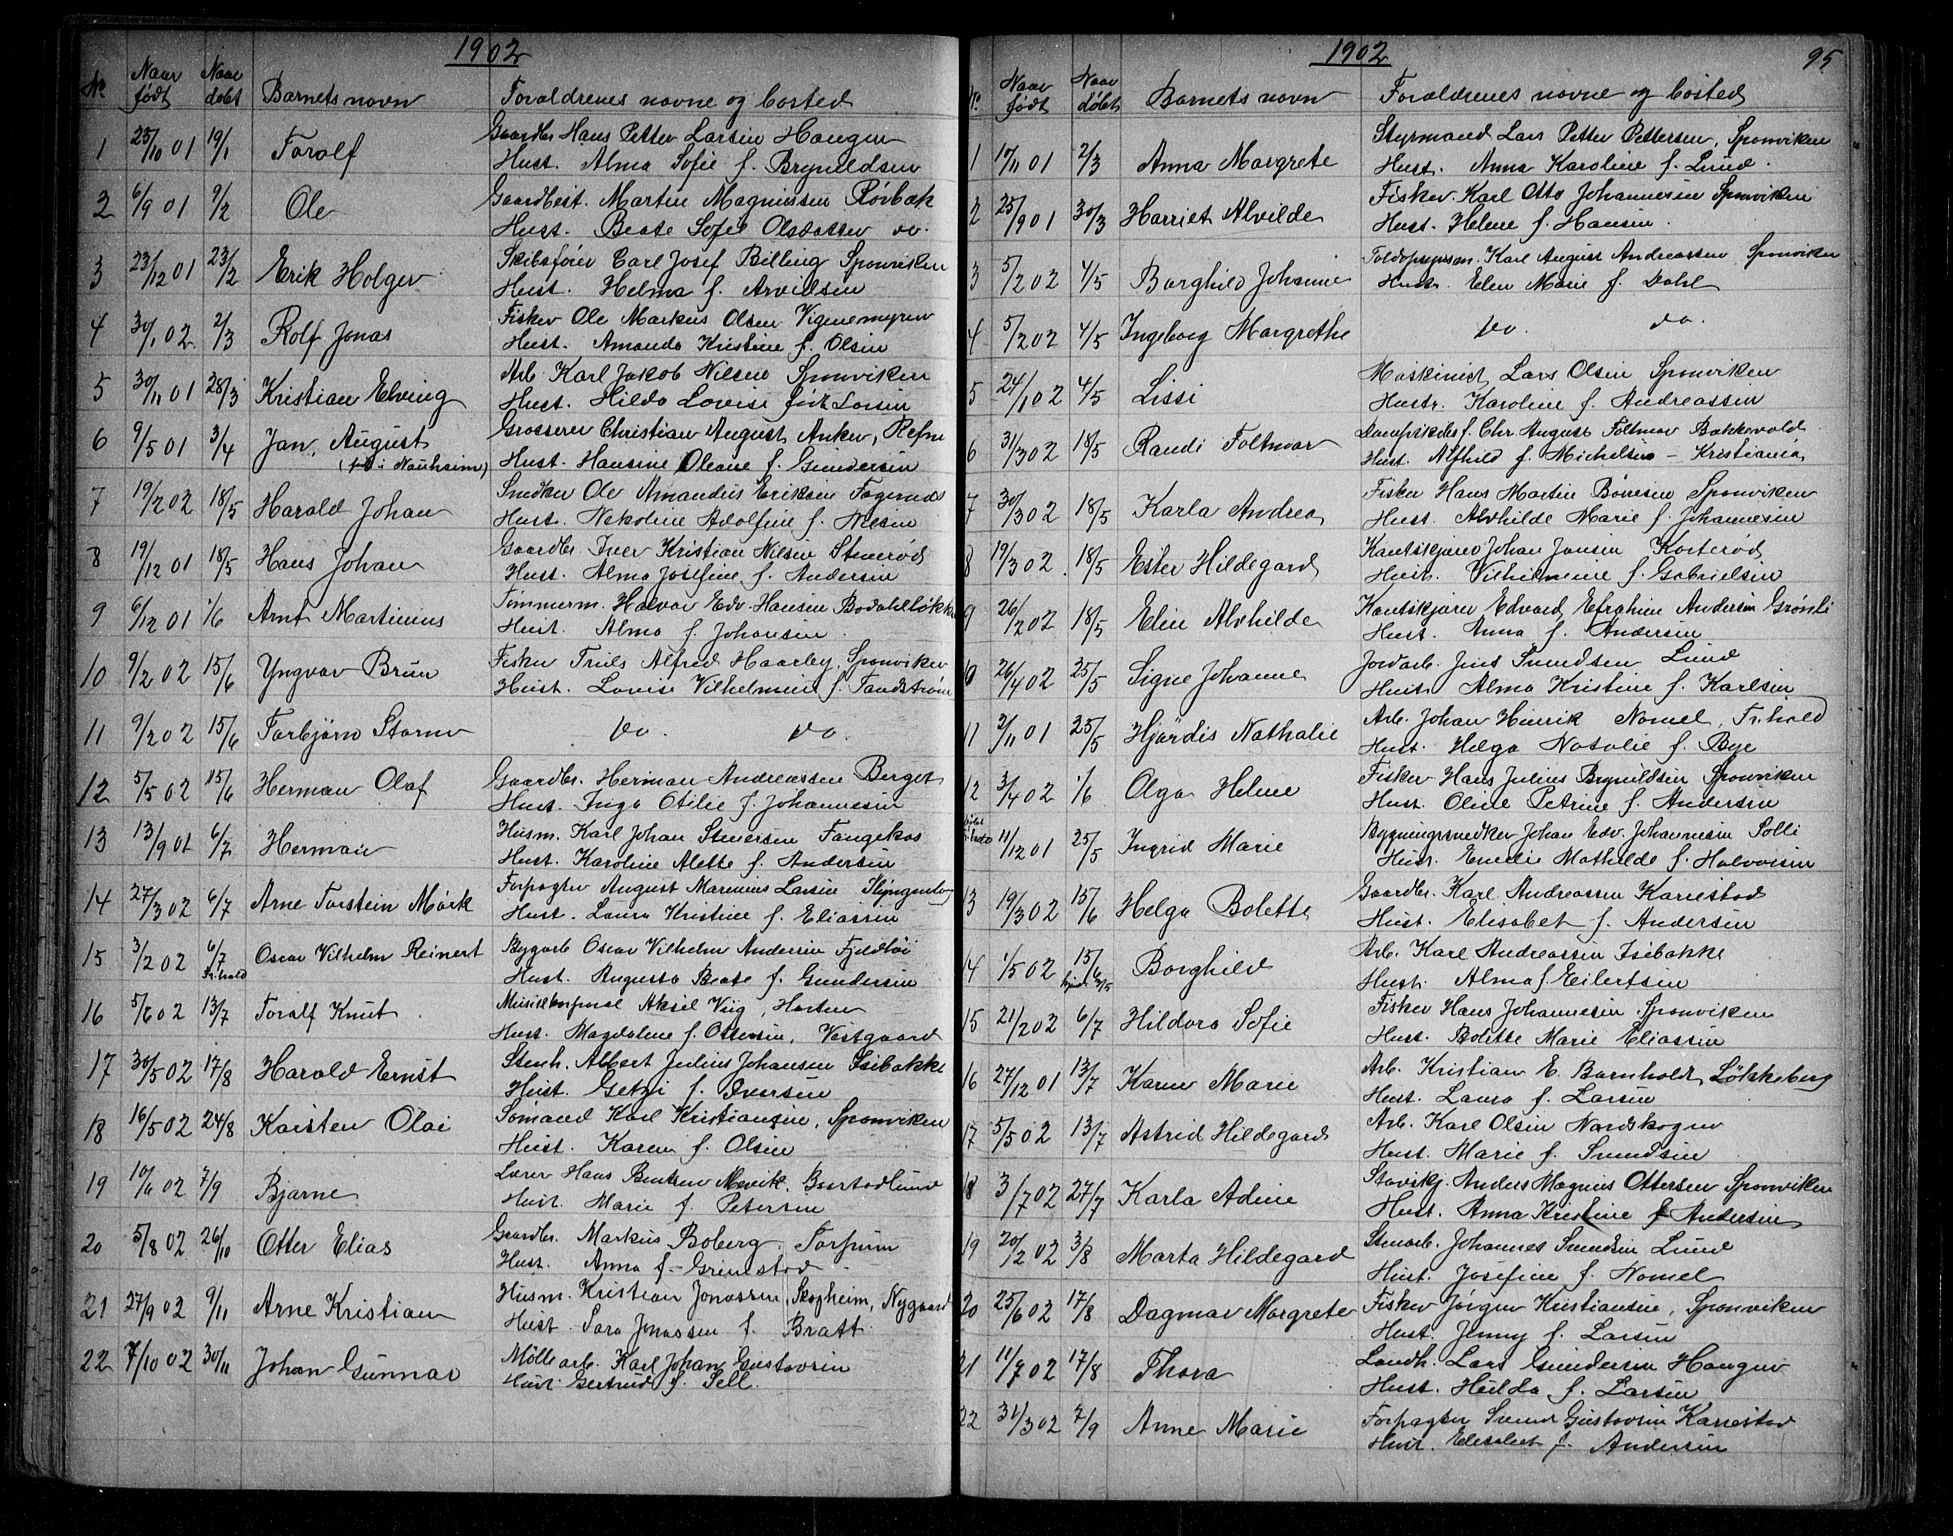 1902
No Naar født Naar døbt Barnets navn Forældrenes navne og bosted
1 25/10 01 19/1 Toralf Gaardbr. Hans Petter Larsen Haugen
Hust. Alma Sofie f. Brynildsen
2 6/9 01 9/2 Ole Gaardbest. Martin Magnussen Rørbæk
Hust. Beate Sofie Olsdatter do.
3 23/12 01 23/2 Erik Holger Skibsfører Carl Josef Billing Sponviken
Hust. Helma f. Arvidsen
4 30/1 02 2/3 Rolf Jonas Fisker Ole Markus Olsen Vigenemyren
Hust. Amanda Kristine f. Olsen
5 30/11 01 28/3 Kristian Elving Arb. Karl Jakob Nilsen Sponviken
Hust. Hilda Lovise født Larsen
6 9/5 01 3/4 Jan August Grosserer Christian August Anker, Refne
(født i Nauheim) Hust. Hansine Oleane f. Gundersen
7 19/2 02 18/5 Harald Johan Snedker Ole Amandus Eriksen Fagernes
Hust. Nekoline Adolfine f. Nilsen
8 19/12 01 18/5 Hans Johan Gaardbr. Iver Kristian Nilsen Stenerød
Hust. Alma Josefine f. Andersen
9 6/12 01 1/6 Arnt Martinius Tømmerm. Halvor Edv. Hansen Bodahlløkke
Hust. Alma f. Johansen
10 9/2 02 15/6 Yngvar Brun Fisker Truls Alfred Haarby, Sponviken
Hust. Lovise Vilhelmine f. Tandstrøm
11 9/2 02 15/6 Torbjørn Storm do. do.
12 5/5 02 15/6 Herman Olaf Gaardbr. Herman Andreassen Berget
Hust. Inga Otilie f. Johannesen
13 13/9 01 6/7 Herman Husm. Karl Johan Stenersen Fangekas
Hust. Karoline Alette f. Andersen
14 27/3 02 6/7 Arne Torstein Mørk Forpagter August Marinius Larsen
Hust. Laura Kristine f. Eliassen
15 3/2 02 6/7 Oscar Vilhelm Reinert Bygarb Oscar Vilhelm Andersen
Fr.hald Hust. Augusta Beate f. Gundersen
16 5/6 02 13/7 Toralf Knut Musikkorporal Aksel Viig, Horten
Hust. Magdalene f. Ottersen, Vestgaard
17 30/5 02 17/8 Harald Ernst Stenh. Albert Julius Johansen Isebakke
Hust. Getzi f. Iversen
18 16/5 02 24/8 Karsten Olai Sømand Karl Kristiansen, Sponviken
Hust. Karen f. Olsen
19 10/6 02 7/9 Bjarne Lærer Hans Bentsen
Hust. Marie f. Petersen
20 5/8 02 26/10 Otter Elias Gaardbr. Markus Boberg, Torpum
Hust. Anna f. Grimstad
21 27/9 02 9/11 Arne Kristian Husm. Kristian Jonassen, Skogheim, Nygaard
Hust. Sara Jonassen f. Bratt
22 7/10 02 30/11 Johan Gunnar Møllearb. Karl Johan Gustavsen
Hust. Gertrud f. Sell.
1902 95
No Naar født Naar døbt Barnets navn Forældrenes navne og bosted
1 17/11 01 2/3 Anna Margrete Styrmand Lars Petter Pettersen, Sponviken
Hust. Anna Karoline f. Lund.
2 25/9 01 30/3 Harriet Alvilde Fisker Karl Otto Johannesen Sponviken
Hust. Helene f. Hansen
3 5/2 02 4/5 Borghild Johanne Karl August Andreassen Sponviken
Hustr. Elen Marie f. Dahl
4 5/2 02 4/5 Ingeborg Margrethe do. do.
5 24/1 02 4/5 Lissi Maskinist Lars Olsen Sponviken
Hustr. Karoline f. Andreassen
6 31/3 02 18/5 Randi Foltmar Chr. August Foltmar Bakkevold
Hust. Alfhild f. Michelsen - Kristiania
7 30/3 02 18/5 Karla Andrea Fisker Hans Martin Bønesen Sponviken
Hust. Alvhilde Marie f. Johannesen
8 19/3 02 18/5 Ester Hildegard Kantskjører Johan Jansen Korterød
Hust. Vilhelmine f. Gabrielsen
9 26/2 02 18/5 Elin Alvhilde Kantskjører Edvard Efrahim Andersen Grønli
Hust. Anna f. Andersen
10 26/4 02 25/5 Signe Johanne Jordarb. Jens Svendsen Lund
Hust. Alma Kristine f. Karlsen
11 2/11 01 25/5 Hjørdis Nathalie Arb. Johan Hinrik Nomel, Fr.hald
Hust. Helga Natalie f. Bye
12 3/4 02 1/6 Olga Helene Fisker Hans Julius Brynildsen Sponviken
Hust. Oline Petrine f. Andersen
11/12 01 25/5 Ingrid Marie Bygningssnedker Johan Edv. Johannesen Solli
Hust. Emelie Mathilde f. Halvorsen
13 19/3 02 15/6 Helga Bolette Gaardbr. Karl Andreassen Karrestad
Hust. Elisabet f. Andersen
14 1/5 02 15/6 Borghild Arb. Karl Andreassen Isebakke
Hustr. Alma f. Eilertsen
15 21/2 02 6/7 Hildora Sofie Fisker Hans Johannesen Sponviken
Hust. Bolette Marie Eliassen
16 27/12 01 13/7 Karen Marie Arb. Kristian E. Barnholdt, Løkkeberg
Hust. Laura f. Larsen
17 5/5 02 13/7 Astrid Hildegard Arb. Karl Olsen Nordskogen
Hust. Marie f. Svendsen
18 3/7 02 27/7 Karla Adine Anders Magnus Ottersen Sponviken
Hust. Anna Kristine f Andersen
19 20/2 02 3/8 Marta Hildegard Stenarb. Johannes Svendsen Lund
Hust. Josefine f. Nomel
20 25/6 02 17/8 Dagmar Margrete Fisker Jørgen Kristiansen, Sponviken
Hust. Jenny f. Larsen
21 11/7 02 17/8 Thora Landh. Lars Gundersen Haugen
Hust. Hulda f. Larsen
22 31/3 02 7/9 Anne Marie Forpagter Svend Gustavsen Karrestad
Hust. Elisabet f. Andersen